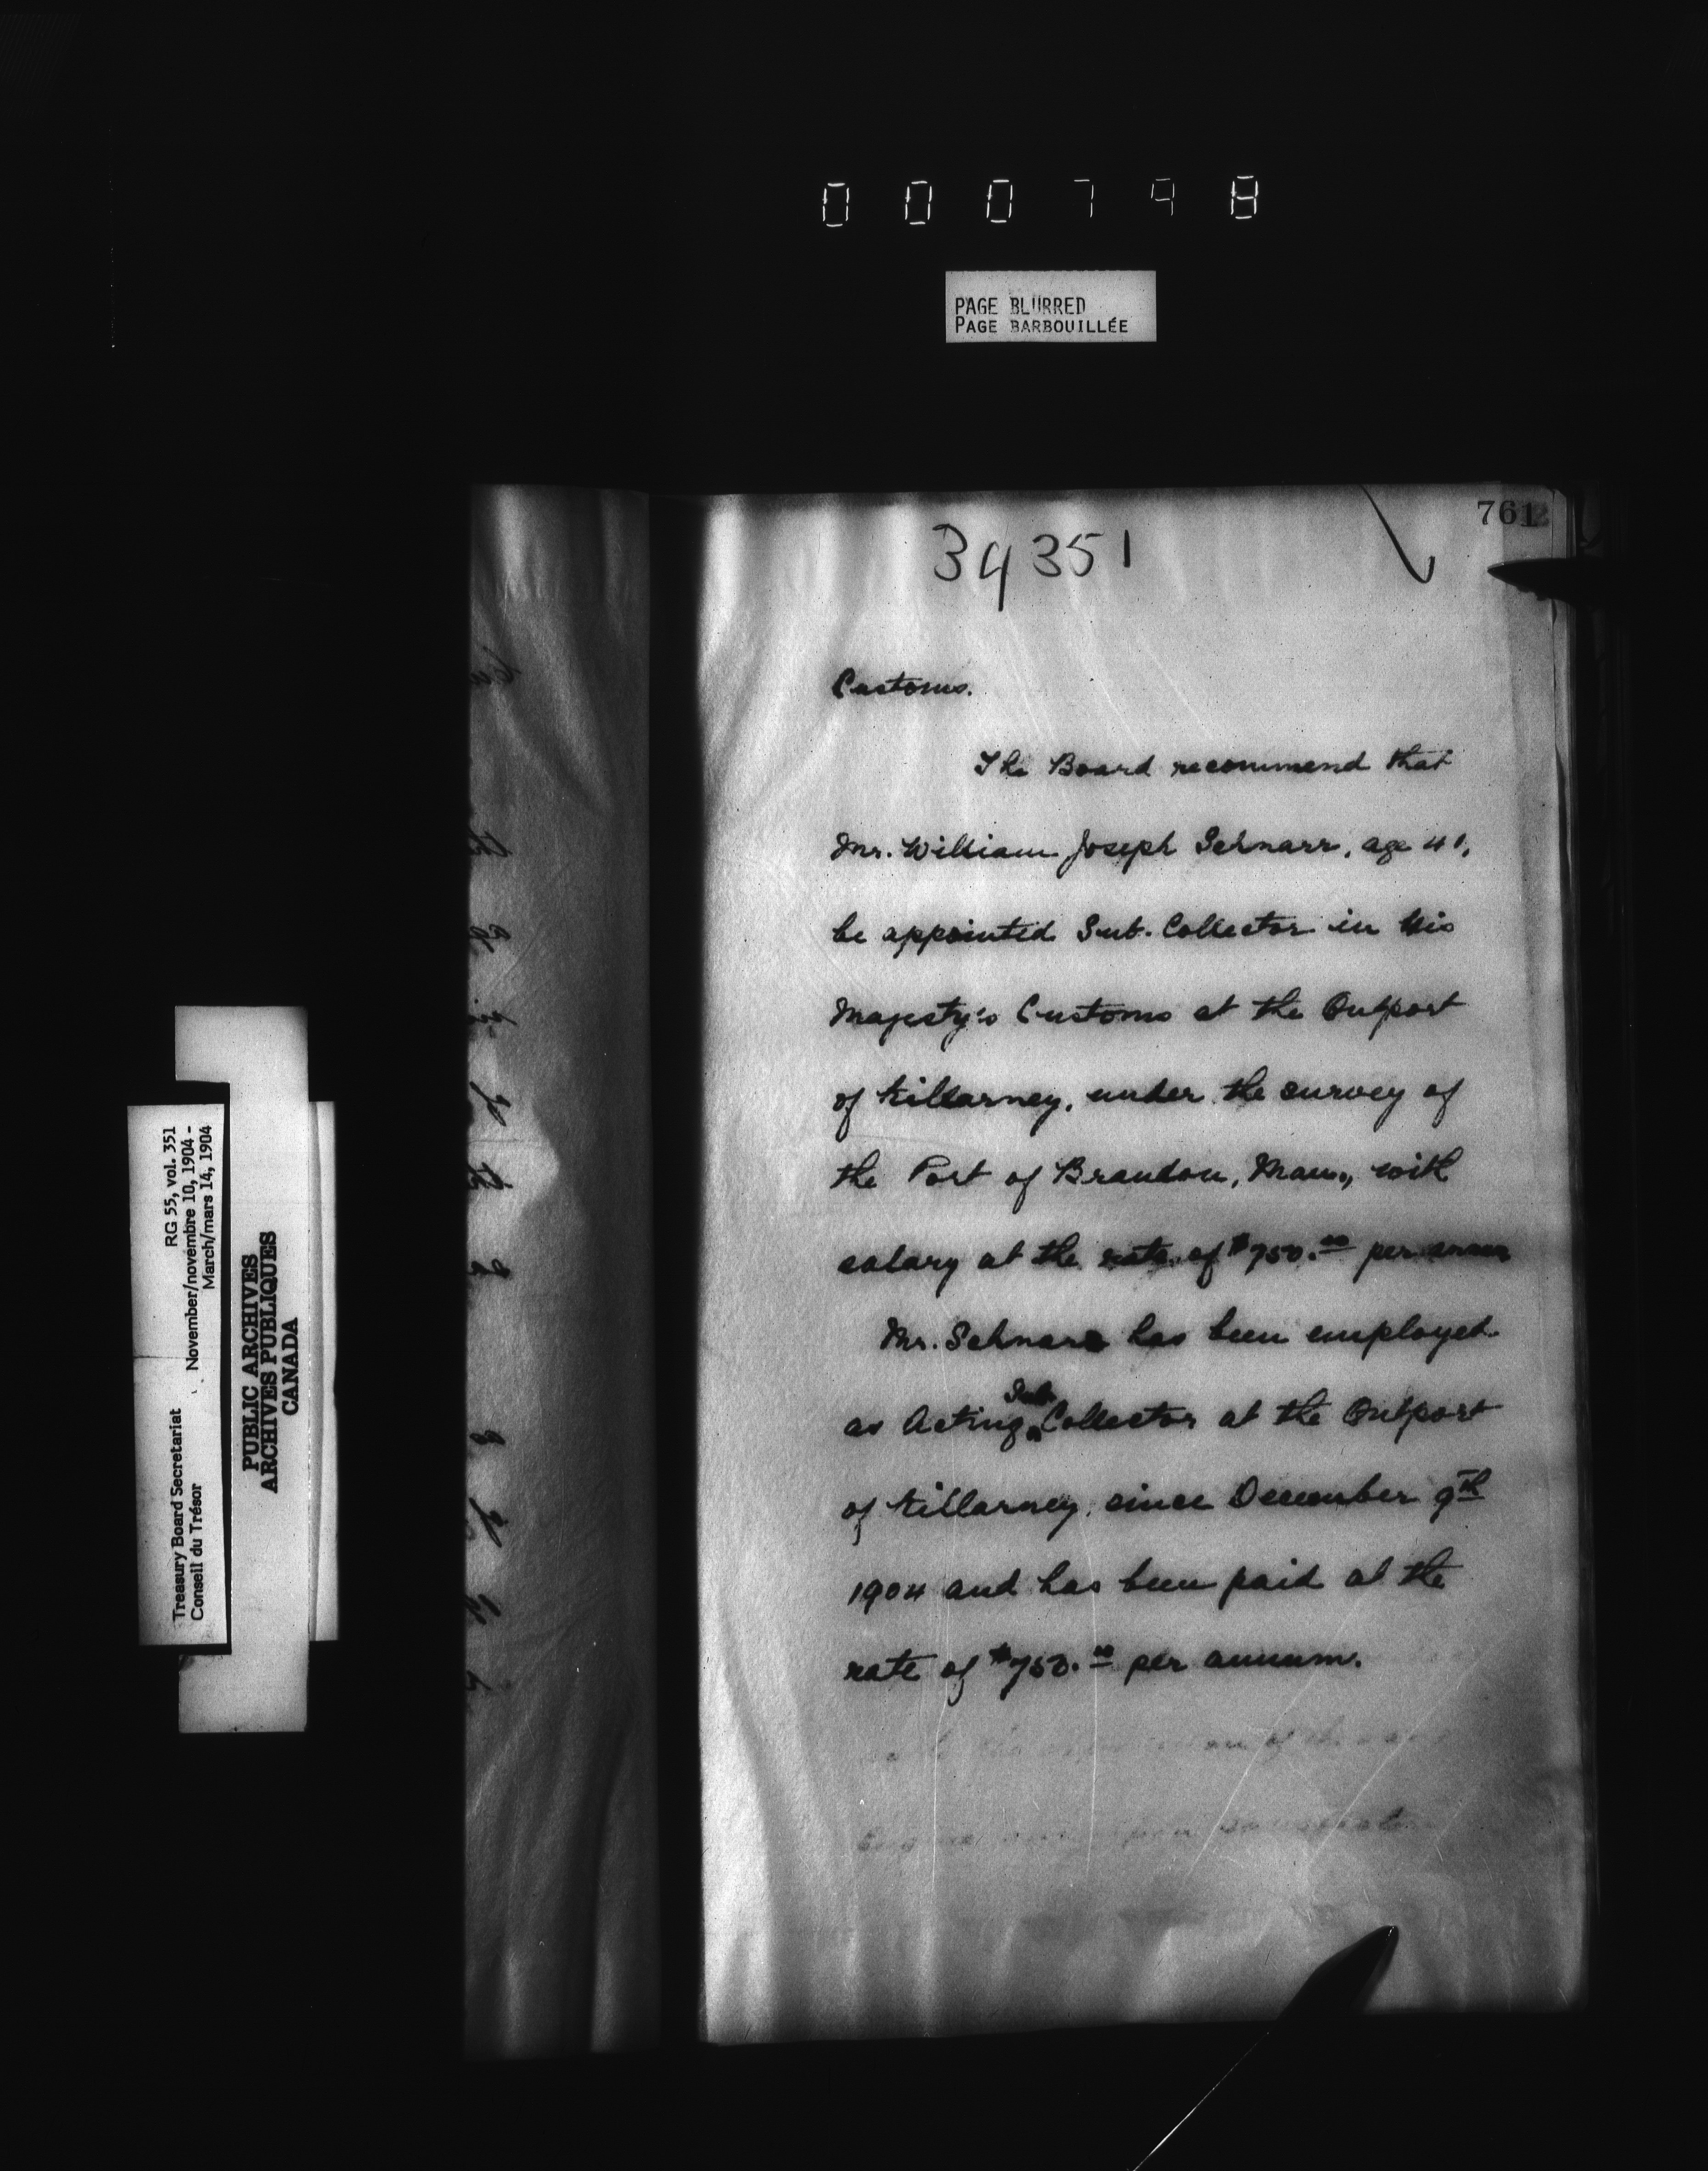 000798
PAGE BLURRED
PAGE BARBOUILLÉE
761
34351
Customs.
The Board recommend that
Mr. William Joseph Schnarr, age 41,
be appointed Sub-Collector in His
Majesty's Customs at the Outport
of Killarney, under the survey of
the Port of Brandon, Man., with
salary at the rate of $750.00 per annum
Mr. Schnarr has been employed
as Acting Sub Collector at the Outport
of Killarney, since December 9th
1904 and has been paid at the
rate of $750.00 per annum.
Treasury Board Secretariat
Conseil du Trésor
RG 55, vol. 351
November/novémbre 10, 1904 -
March/mars 14, 1904
PUBLIC ARCHIVES
ARCHIVES PUBLIQUES
CANADA